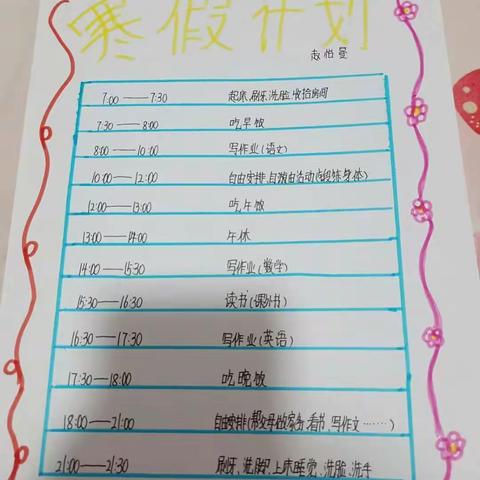 寒假计划
赵怡曼
7:00——7:30 起床、刷牙、洗脸、收拾房间
7:30——8:00 吃早饭
8:00——10:00 写作业(语文)
10:00——12:00 自由安排,自由活动(锻炼身体)
12:00——13:00 吃午饭
13:00——14:00 午休
14:00——15:30 写作业(数学)
15:30——16:30 读书(课外书)
16:30——17:30 写作业(英语)
17:30——18:00 吃晚饭
18:00——21:00 自由安排(帮父母做家务、看书、写作文……)
21:00——21:30 刷牙、洗脚、上床睡觉、洗脸、洗手